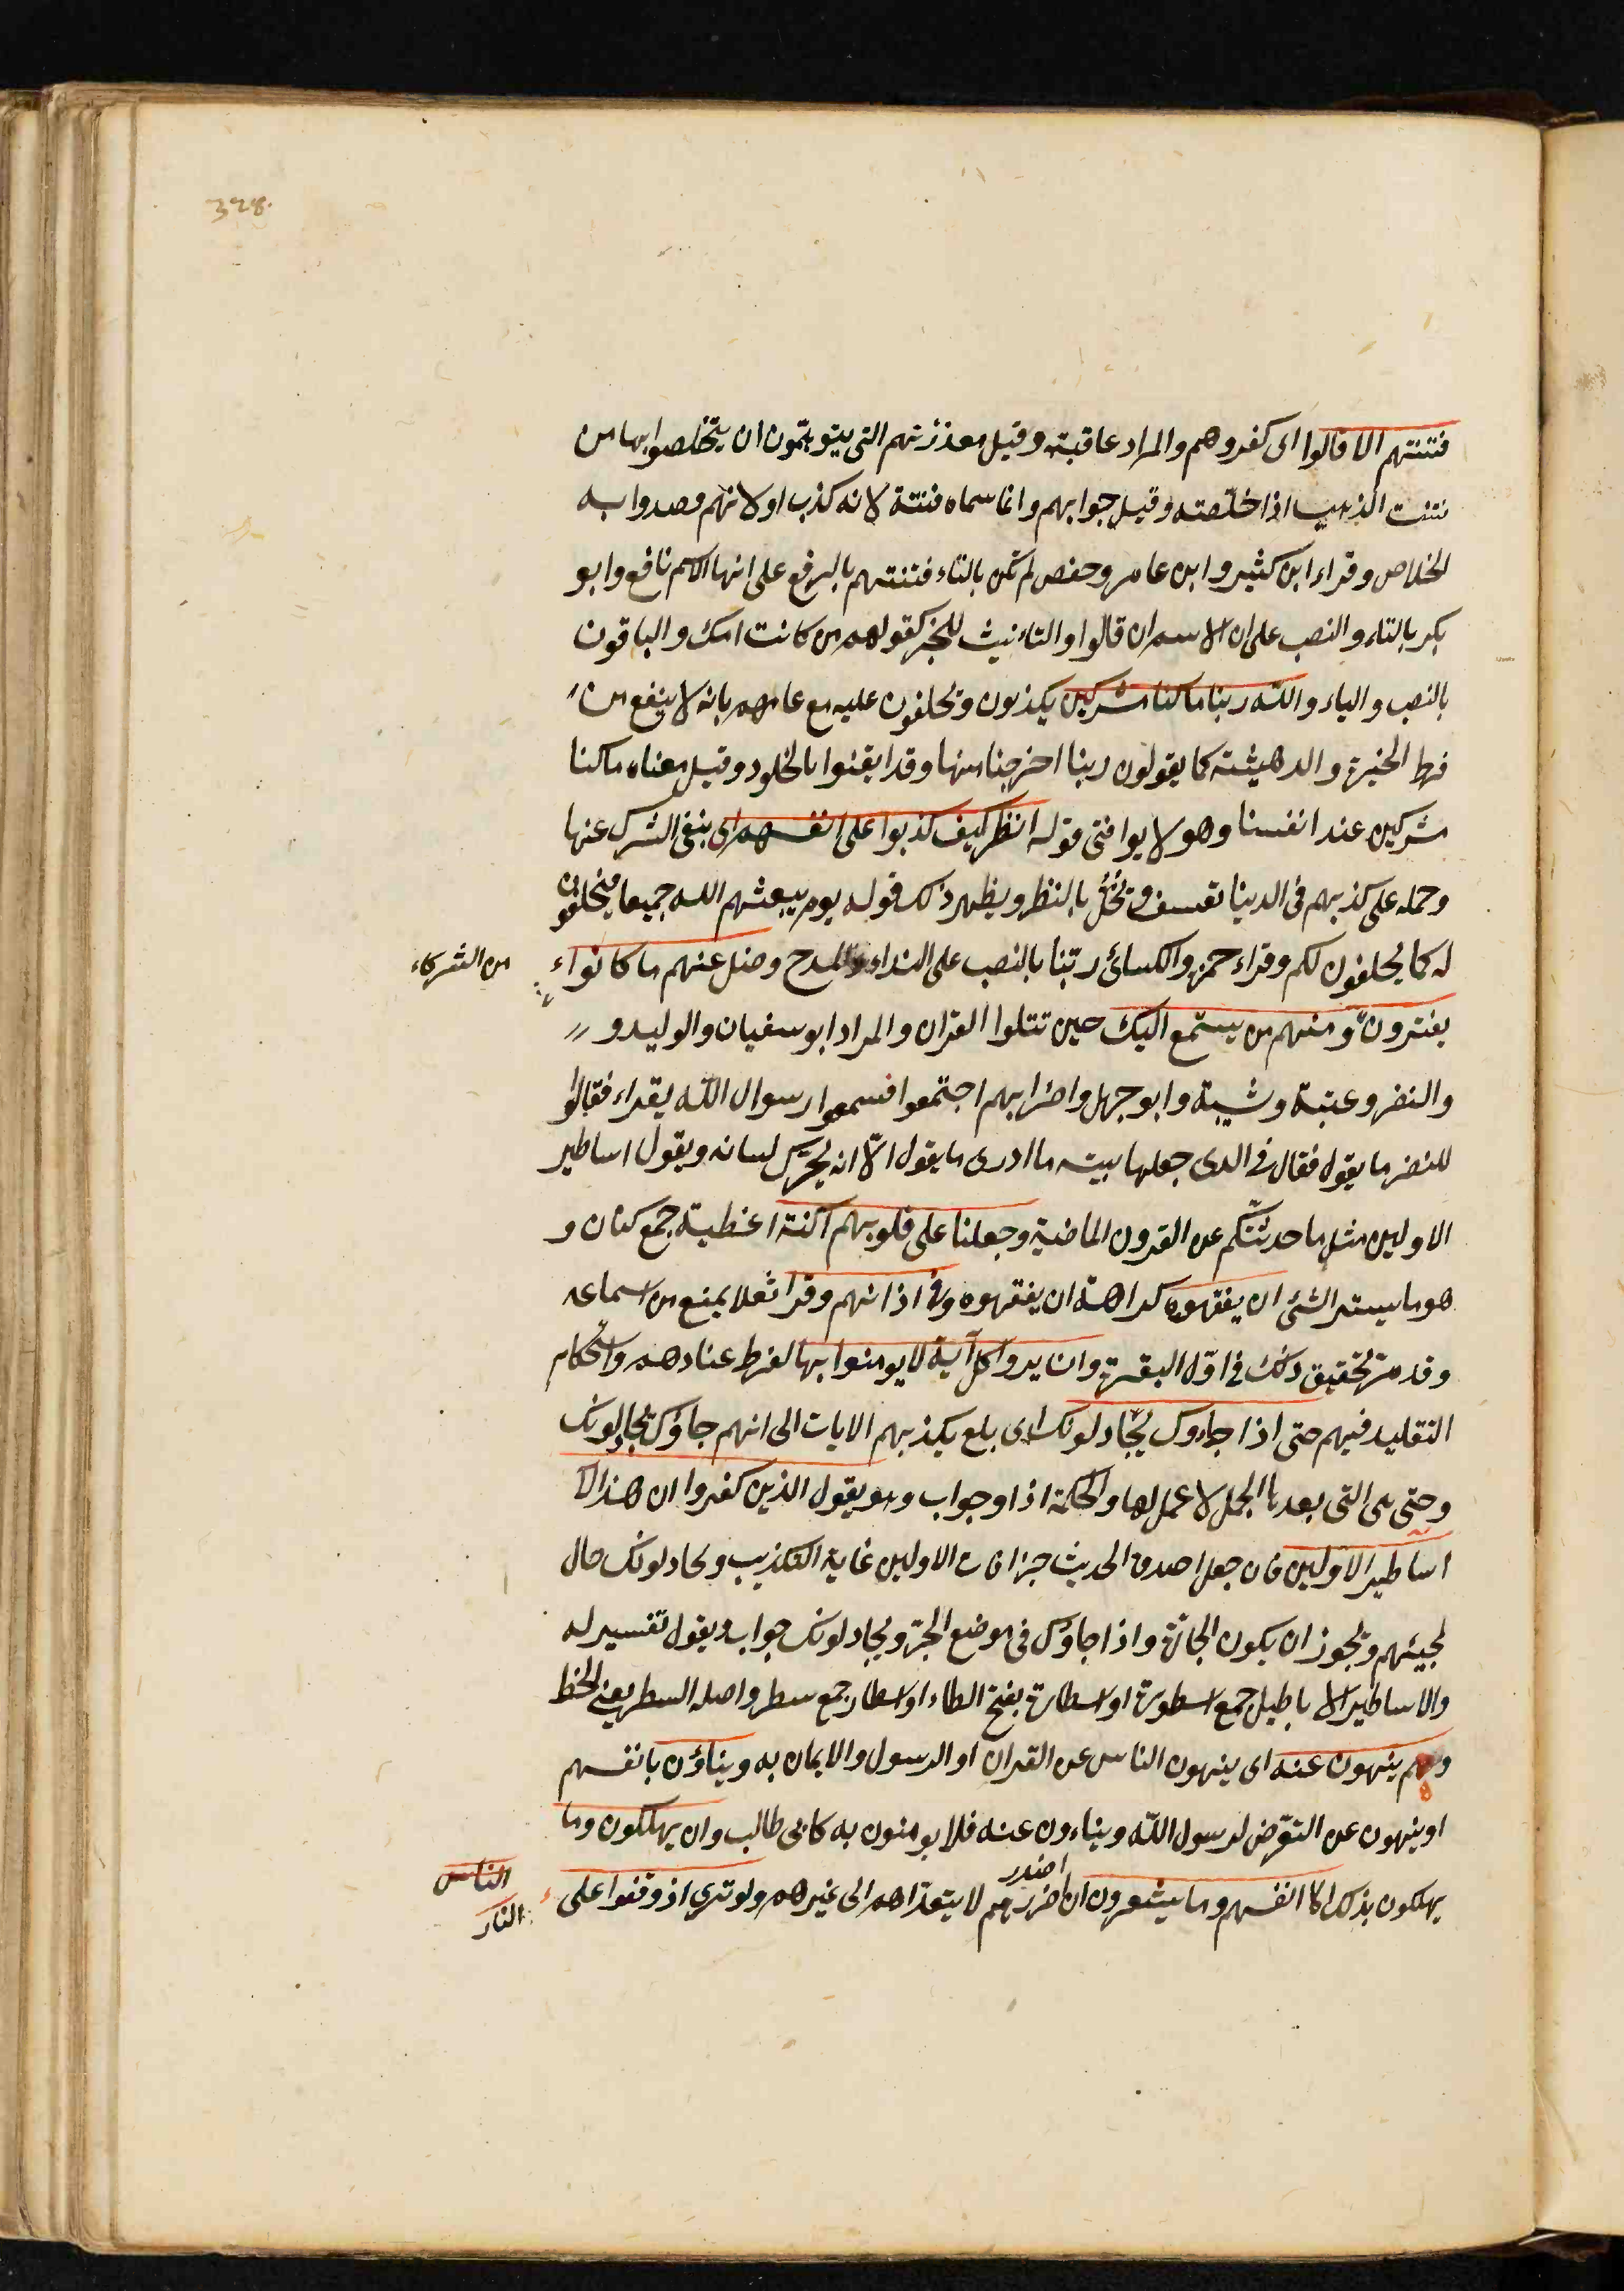 328.
فتنتهم الا قالوا اى كفروهم والمراد عاقبته وقيل معذرتهم التى يتوهمون ان يتخلصوا بها من
فتنت الذهب اذا خلصته وقيل جوابهم وانما سماه فتنة لانه كذب او لانهم قصدوا به
الخلاص وقراء ابن كثير وابن عامر وحفص لم تكن بالتاء فتنتهم بالرفع على انها الاسم نافع وابو
بكر بالتاء والنصب على ان الاسم ان قالوا والتانيث للخبر كقولهم من كانت امك والباقون
بالنصب والياء والله ربنا ما كنا مشركين يكذبون ويحلفون عليه مع علمهم بانه لا ينفع من
فرط الحيرة والدهشته كما يقولون ربنا اخرجنا منها وقد ايقنوا بالخلود وقيل معناه ما كنا
مشركين عند انفسنا وهو لا يوافق قوله انظر كيف كذبوا على انفسهم اى بنفى الشرك عنها
وحمله على كذبهم فى الدنيا تعسف يخل بالنظم ويظهر ذلك قوله يوم يبعثهم الله جميعا فيحلفون
له كما يحلفون لكم وقراء حمزه والكسائى ربنا بالنصب على النداء والمدح وضل عنهم ما كانوا
من الشركاء
يفترون ومنهم من يستمع اليك حين تتلوا القران والمراد ابو سفيان والوليد و
والنضر وعتبة وشيبة وابو جهل واضرابهم اجتمعوا فسمعوا رسوال الله يقراء فقالوا
للنضر ما يقول فقال فى الذى جعلها بيته ما ادرى ما يقول الّا انه يحرك لسانه ويقول اساطير
الاولين مثل ما حدثتكم عن القرون الماضية وجعلنا على قلوبهم اكنة اغطية جمع كنان و
هو ما يستر الشئ ان يفقهوه كراهة ان يفقهوه وفى اذانهم وقرا ثقلا يمنع من اسماعه
وقد مر تحقيق ذلك فى اول البقرة وان يروا كل آية لا يومنوا بها لفرط عنادهم واستحكام
التقليد فيهم حتى اذا جاءوك يجادلونك اى بلغ بكذبهم الايات الى انهم جاؤك يجادلونك
وحتى هى التى بعدها الجمل لا عمل لها والجملة اذا وجواب وهو يقول الذين كفروا ان هذا الا
اساطير الاولين فان جعل اصدق الحديث خرافات الاولين غاية التكذيب ويجادلونك حال
لمجيئهم ويجوز ان يكون الجارة واذا جاؤك فى موضع الجر ويجادلونك جواب ويقول تفسير له
والاساطير الا باطيل جمع اسطورة او اسطارة بفتح الطاء او اسطار جمع سطر واصله السطر يعنى الخط
وهم ينهون عنه اى ينهون الناس عن القران او الرسول والايمان به ويناؤن بانفسهم
او ينهون عن التعرض لرسول الله ويناءون عنه فلا يومنون به كابى طالب وان يهلكون وما
يهلكون بذلك الا انفسهم وما يشعرون ان اضررهم لا يتعداهم الى غيرهم ولو ترى اذ وقفوا على
اضرر
الناس
النار